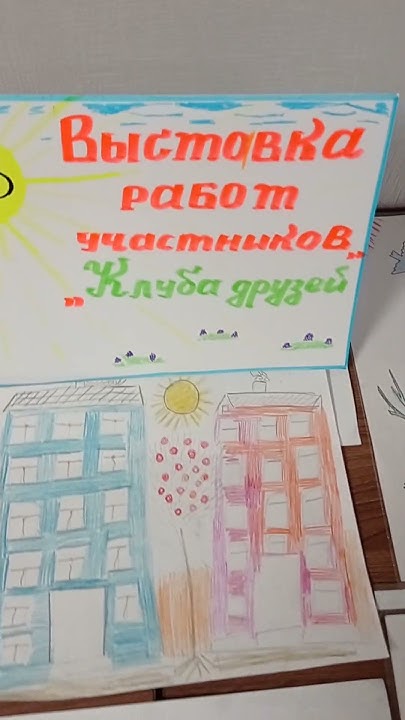 Выставка
работ
участников
„Клуба друзей"